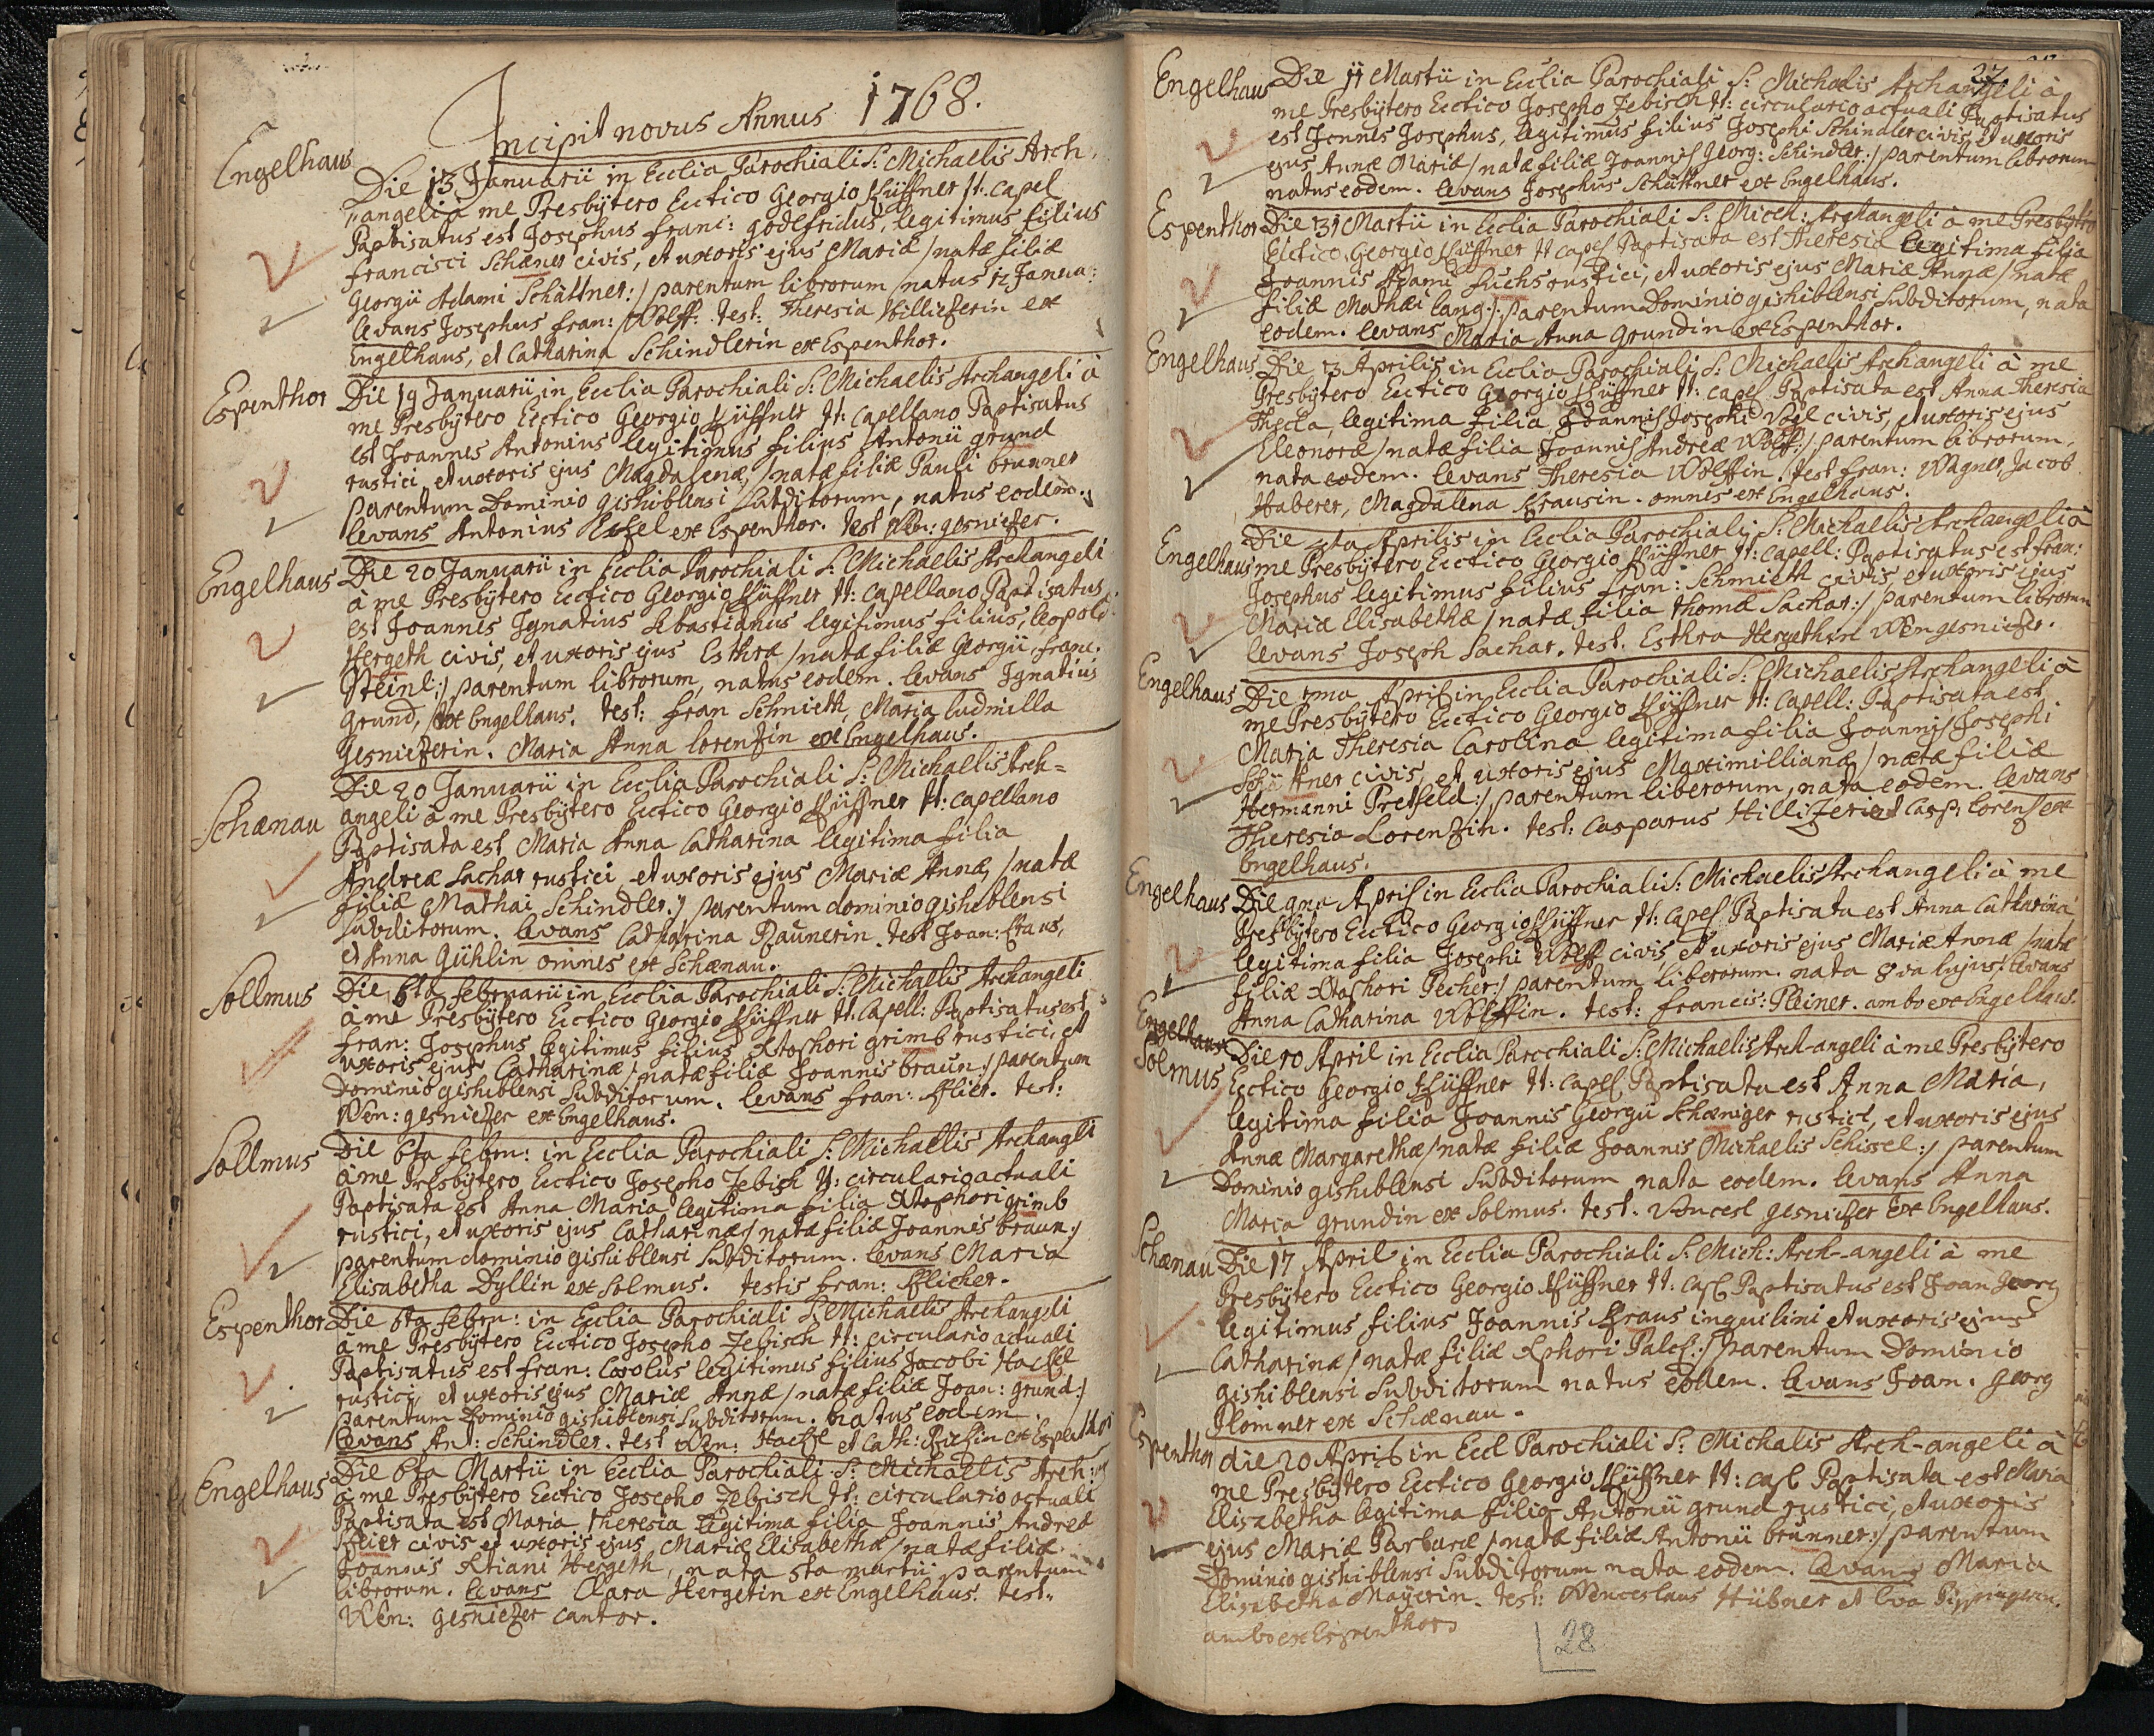 Incipit novus Annus 1768.
Engelhaus
Die 13 Januarii in Ecclia Parochiali S: Michaelis Arch,
"angeli à me Presbÿtero Ecctico Georgio Küffner tt: Capel
Baptisatus est Josephus Franc: Godefridus, legitimus filius
Francisci Schæner civis, et uxoris ejus Mariæ /natæ filiæ
Georgii Adami Schättner:/ parentum librorum /natus 12 Janua:
levans Josephus Fran: Wolff: test: Theresia Hillizerin ex
Engelhaus, et Catharina Schindlerin ex Espenthor.
Espenthor
Die 19 Januarii in Ecclia Parochiali S: Michaelis Archangeli à
me Presbÿtero Ecctico Georgio Küffner tt: Capellano Baptisatus
est Joannes Antonius legitimus filius Antonii Grund
rustici, et uxoris ejus Magdalenæ, /natæ filiæ Pauli brunner
parentum Dominio gishiblensi subditorum, natus eodem.
levans Antonius ex Espenthor. test Wen: gesniezer.
Engelhaus
Die 20 Januarii in Ecclia Parochiali S: Michaelis Archangeli
à me Presbÿtero Ecctico Georgio Küffner tt: Capellano Baptisatus
est Joannes Ignatius Sebastianus legitimus filius, leopold:
Hergeth civis, et uxoris ejus Esthræ /natæ filiæ Georgii, franc.
Steinl:/ parentum librorum, natus eodem. levans Ignatius
Grund, ex Engelhaus. test: fran Schmieth, Maria ludmilla
Gesniezerin. Maria Anna lorenzin ex Engelhaus.
Schænau
Die 20 Januarii in Ecclia Parochiali S: Michaelis Arch=
angeli à me Presbÿtero Ecctico Georgio Küffner tt: Capellano
Baptisata est Maria Anna Catharina legitima filia
Andreæ Sachar rustici et uxoris ejus Mariæ Annæ, /natæ
filiæ Mathæi Schindler:/ parentum dominio gishiblensi
subditorum. levans Catharina Raunerin. test Joan: Kraus,
et Anna Gühlin omnes ex Schænau.
Sollmus
Die 6ta februarii in Ecclia Parochiali S: Michaelis Archangeli
à me Presbÿtero Ecctico Georgio Küffner tt: Capell: Baptisatus est
Fran: Josephus legitimus filius Xtophori grimb rustici, et
uxoris ejus Catharinæ /natæ filiæ Joannis braun:/ parentum
Dominio gishiblensi subditorum. levans fran: Flier. test:
Wen: gesniezer ex Engelhaus.
Sollmus
Die 6ta febru: in Ecclia Parochiali S: Michaelis Archangli
à me Presbÿtero Ecctico Josepho Zebisch tt: circulario actuali
Baptisata est Anna Maria legitima filia Xtophori grimb
rustici, et uxoris ejus Catharinæ /natæ filiæ Joannis braun:/
parentum dominio gishiblensi subditorum. levans Maria
Elisabetha Dyllin ex Solmus. testis fran: Flicher.
Espenthor
Die 6ta febru: in Ecclia Parochiali S: Michaelis Archangeli
à me Presbÿtero Ecctico Josepho Zebisch tt: circulario actuali
Baptisatus est fran: Carolus legitimus filius Jacobi
rustici, et uxoris ejus Mariæ Annæ /natæ filiæ Joan: grund:/
parentum Dominio gishiblensi subditorum. natus eodem.
levans Ant: Schindler. test Wen: et Cath: ex Espenthor
Engelhaus
Die 6ta Martii in Ecclia Parochiali S: Michaelis Arch:
à me Presbÿtero Ecctico Josepho Zebisch tt: circulario actuali
Baptisata est Maria Theresia legitima filia Joannis Andreæ
civis et uxoris ejus Mariæ Elisabethæ /natæ filiæ
Joannis Xtiani Hergeth, nata 5ta martii parentum
librorum. levans Clara Hergetin ex Engelhaus. test.
Wen: gesniezer cantor.
27
Engelhaus
Die 11 Martii in Ecclia Parochiali S: Michaelis Archangeli à
me Presbÿtero Ecctico Josepho Zebisch tt: circulario actuali Baptisatus
est Joannes Josephus, legitimus filius Josephi Schindler civis, et uxoris
ejus Annæ Mariæ /natæ filiæ Joannis Georg: Schindler:/ parentum librorum
natus eodem. levans Josephus Schättner ex Engelhaus.
Espenthor
Die 31 Martii in Ecclia Parochiali S: Mich: Archangeli à me Presbytro
Ecctico Georgio Küffner tt Capel Baptisata est Theresia legitima filia
Joannis Adami Fuchs rustici, et uxoris ejus Mariæ Annæ /natæ
filiæ Mathæi lang:/ parentum Dominio gishiblensi subditorum, nata
eodem. levans Maria Anna Grundin ex Espenthor.
Engelhaus
Die 3 Aprilis in Ecclia Parochiali S: Michaelis Archangeli à me
Presbÿtero Ecctico Georgio Küffner tt: Capel Baptisata est Anna Theresia
Thecla, legitima filia Joannis Josephi civis, et uxoris ejus
Eleonoræ /natæ filia Joannis Andreæ Wolff:/ parentum librorum,
nata eodem. levans Theresia Wolffin. test fran: Wagner, Jacob
Haberer, Magdalena Krausin. omnis ex Engelhaus.
Engelhaus
Die Aprilis in Ecclia Parochiali S: Michaelis Archangeli à
me Presbÿtero Ecctico Georgio Küffner tt: Capell: Baptisatus est fran:
Josephus legitimus filius fran: Schmieth civis, et uxoris ejus
Mariæ Elisabethæ /natæ filia thomæ Sachar:/ parentum librorum
levans Joseph Sachar. test. Esthra Hergethin Wen gesniezer.
Engelhaus
Die Apris in Ecclia Parochiali S: Michaelis Archangeli à
me Presbÿtero Ecctico Georgio Küffner tt: Capell: Baptisata est
Maria Theresia Carolina legitima filia Joannis Josephi
civis, et uxoris ejus Maximillianæ /natæ filiæ
Hermanni Pretfeld:/ parentum liberorum, nata eodem. levans
Theresia Lorenzin. test: Casparus Hillizer et Casp: lorenz ex
Engelhaus.
Engelhaus
Die 9na Apris in Ecclia Parochiali S: Michaelis Archangeli à me
Presbÿtero Ecctico Georgio Küffner tt: Capel. Baptisata est Anna Catharina
legitima filia Josephi Wolff civis, et uxoris ejus Mariæ Annæ /natæ
filiæ Xtophori Pecher:/ parentum liberorum. nata 8va hujus. levans
Anna Catharina Wolffin. test: Francis: Pleiner. ambo ex Engelhaus.
Engelhaus
Solmus
Die 10 April in Ecclia Parochiali S: Michaelis Arch-angeli à me Presbÿtero
Ecctico Georgio Küffner tt: Capel Baptisata est Anna Maria,
legitima filia Joannis Georgii Schæniger rustici, et uxoris ejus
Annæ Margarethæ /natæ filiæ Joannis Michaelis Schissel:/ parentum
Dominio gishiblensi subditorum nata eodem. levans Anna
Maria Grundin ex Solmus. test. Wencesl gesniezer ex Engelhaus.
Schænau
Die 17 April in Ecclia Parochiali S: Mich: Arch-angeli à me
Presbÿtero Ecctico Georgio Küffner tt: Capl Baptisatus est Joan Georg
legitimus filius Joannis Kraus inquilini et uxoris ejus
Catharinæ /natæ filiæ Xphori Palcl:/ parentum Dominio
gishiblensi Subditorum natus eodem. levans Joan. Georg
Plomner ex Schænau.
Espenthor
die 20 Apris in Eccl Parochiali S: Michalis Arch-angeli à
me Presbÿtero Ecctico Georgio Küffner tt: Capl Baptisata est Maria
Elisabetha legitima filia Antonii grund rustici, et uxoris
ejus Mariæ Barbaræ /natæ filiæ Antonii brunner:/ parentum
Dominio gishiblensi Subditorum nata eodem. levans Maria
Elisabetha Mayerin. test: Wenceslaus Hübner et Eva
ambo ex Espenthor
28